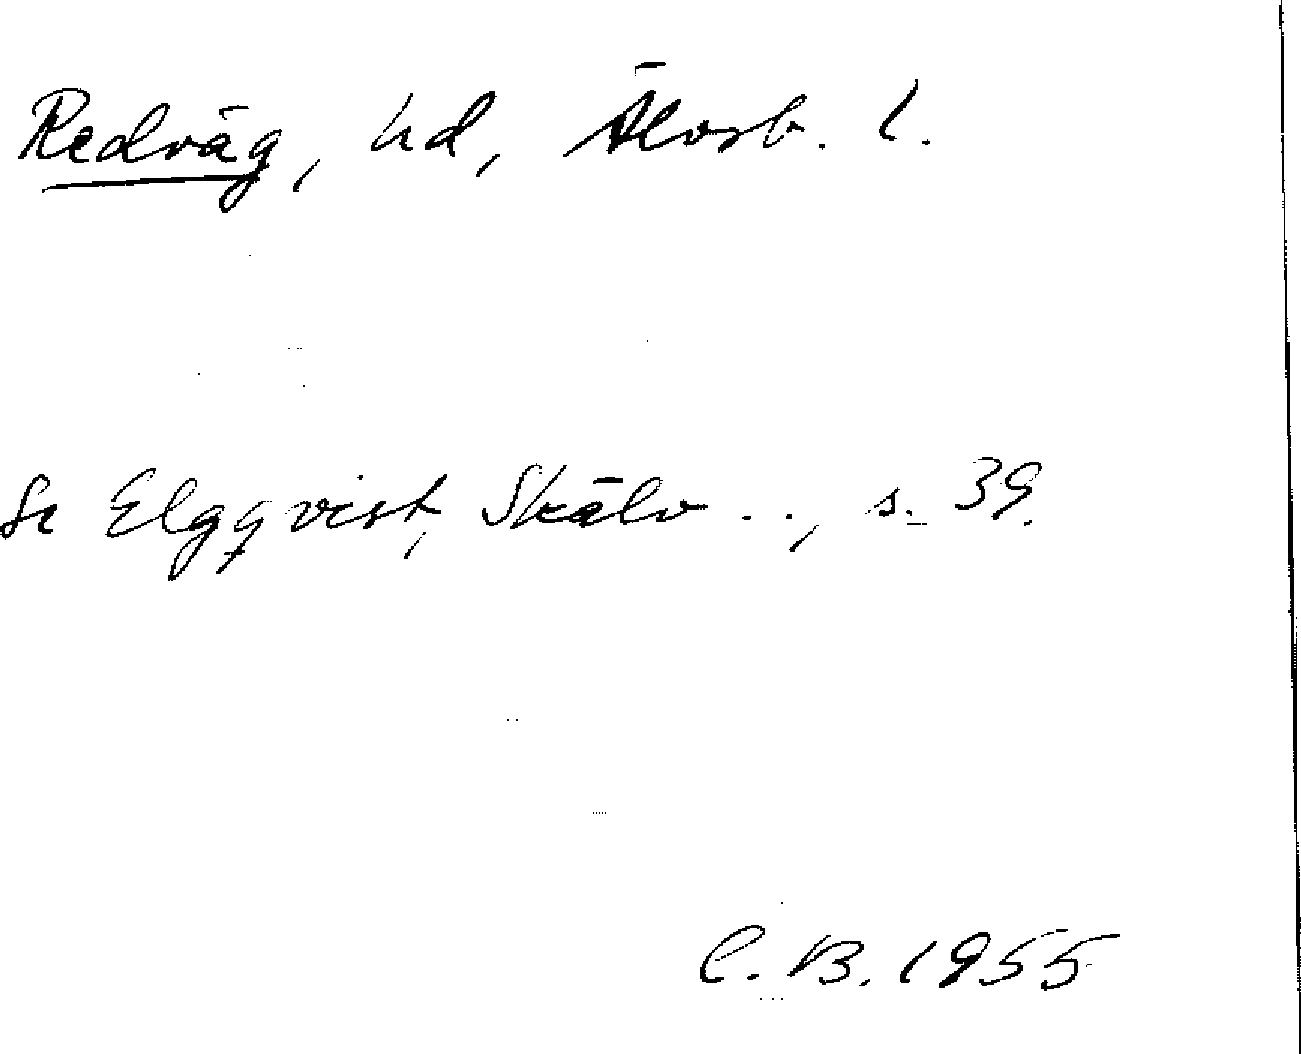 Redväg, hd, Älvsb. l.
Se Elgqvist, Skälv . ., s. 39.
C. B. 1955